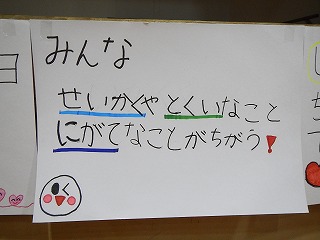 みんな
せいかくやとくいなこと
にがてなことがちがう!